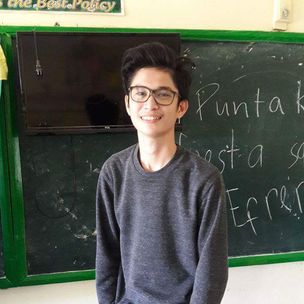 the Best Policy
Punta k
esta sa
Efren